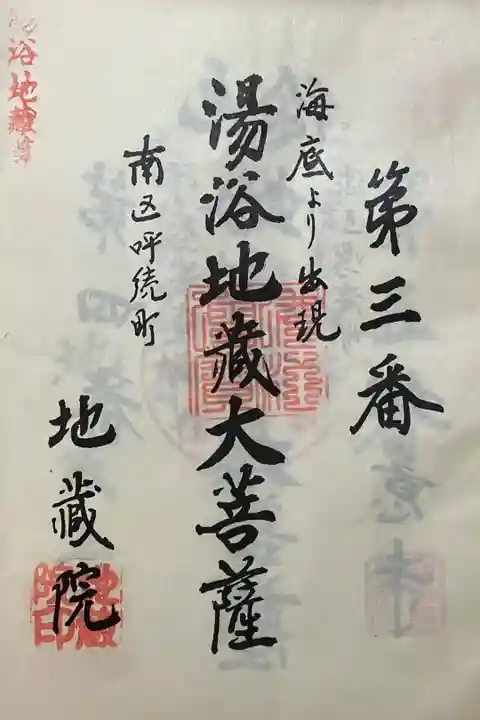 第三番
海底より出現
湯浴地蔵大菩薩
南区呼続町
地蔵院
浴地蔵尊
地蔵院印